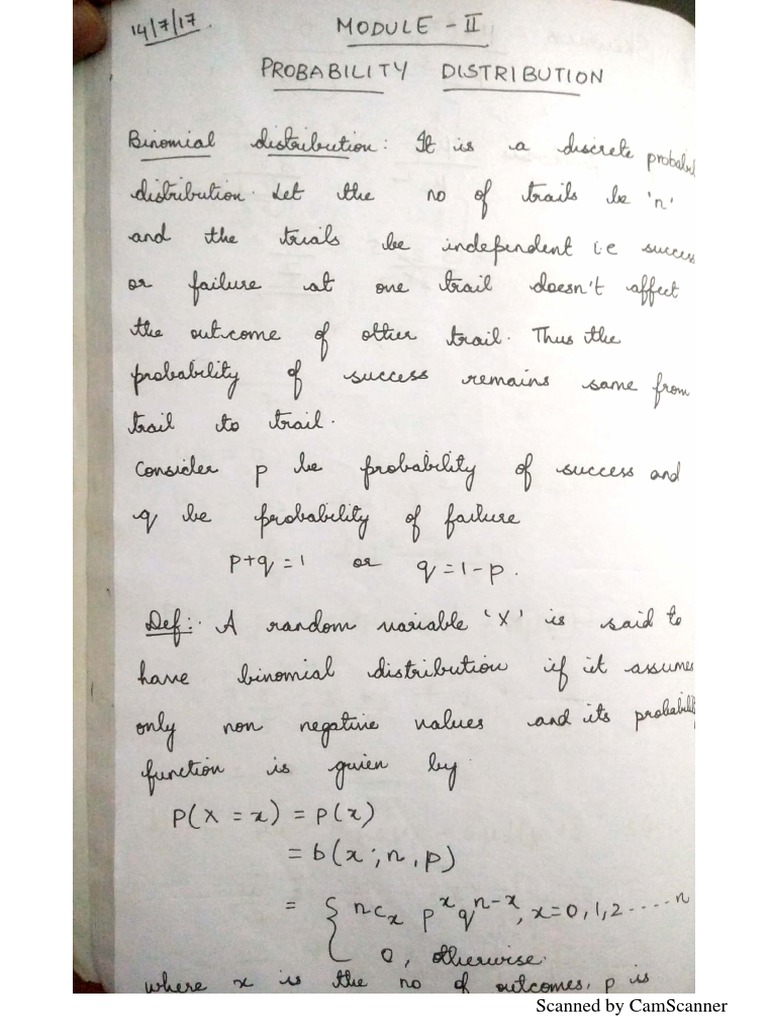 14/7/17
MODULE - II
PROBABILITY DISTRIBUTION
Binomial distribution: It is a discrete probabil
distribution. Let the no of trails be 'n'
and the trials be independent i.e success
or failure at one trail doesn't affect
the outcome of other trail. Thus the
probability of success remains same from
trail to trail.
Consider p be probability of success and
q be probability of failure
p+q=1 or q=1-p.
Def:- A random variable 'X' is said to
have binomial distribution if it assumes
only non negative values and its probability
function is given by
P(X = x) = P(x)
= b(x; n, p)
= { ncₓ pˣ qⁿ⁻ˣ, x=0,1,2.....n
0, otherwise.
where x is the no of outcomes, p is
Scanned by CamScanner